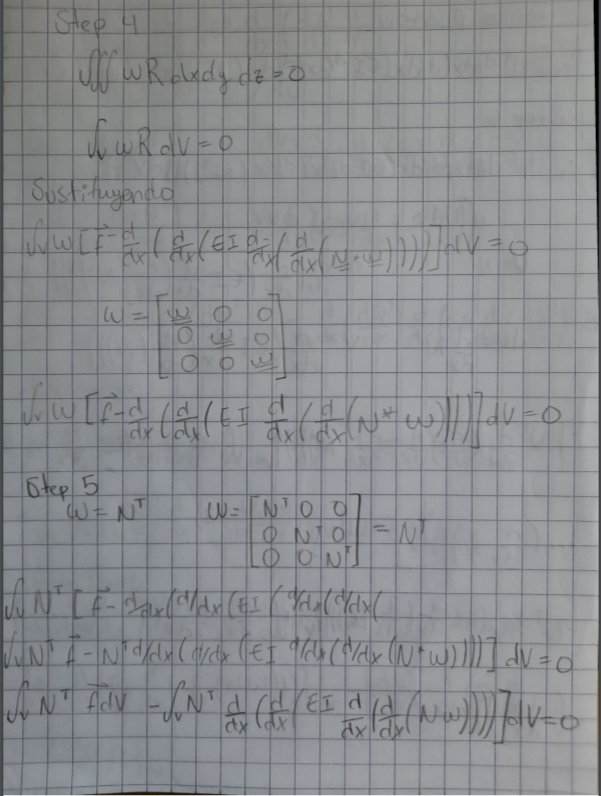 Step 4
∭ w R dx dy dz = 0
∫v w R dV = 0
Sustituyendo
∫v w [f⃗ - d/dx ( d/dx ( EI d/dx ( d/dx ( N · w ) ) ) )] dV = 0
w = [ w 0 0
0 w 0
0 0 w ]
∫v w [f⃗ - d/dx ( d/dx ( EI d/dx ( d/dx ( N * w ) ) ) )] dV = 0
Step 5
w = Nᵀ w = [ Nᵀ 0 0
0 Nᵀ 0
0 0 Nᵀ ] = Nᵀ
∫v Nᵀ [ f⃗ - d/dx ( d/dx ( EI ( d/dx ( d/dx (
∫v Nᵀ f⃗ - Nᵀ d/dx ( d/dx ( EI d/dx ( d/dx ( N * w ) ) ) ) ] dV = 0
∫v Nᵀ f⃗ dV - ∫v Nᵀ d/dx ( d/dx ( EI d/dx ( d/dx ( N w ) ) ) ) ] dV = 0